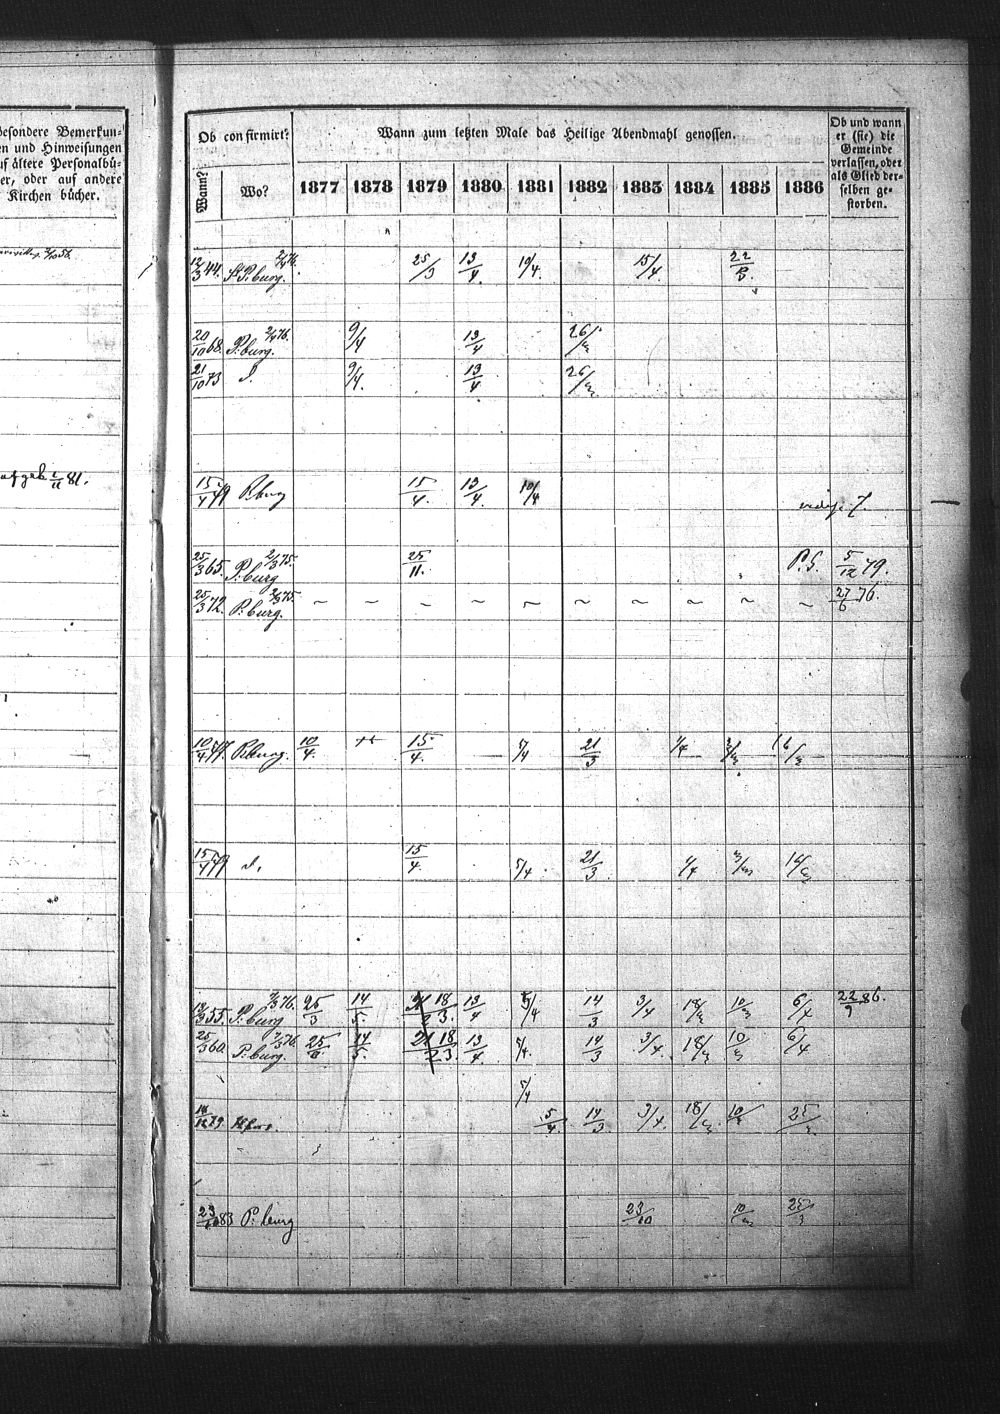 Besondere Bemerkun-
en und Hinweisungen
uf ältere Personalbü-
er, oder auf andere
Kirchen bücher.
Ob confirmirt?
Wann? Wo?
Wann zum letzten Male das Heilige Abendmahl genossen.
1877 1878 1879 1880 1881 1882 1883 1884 1885 1886
Ob und wann
er (sie) die
Gemeinde
verlassen, oder
als Glied der-
selben ge-
storben.
12/3 44. St. P.burg. 2/4 76. 25/3 13/4 19/4. 15/4 22/3.
20/10 68. P.burg. 2/4 76. 9/4 13/4 26/3
21/10 73 d. 9/4. 13/4 26/3
ufgeb. 81.
15/4 79 P.burg 15/4. 13/4. 10/4
25/3 65. P.burg 2/3 75. 25/11. P.G. 5/12 79.
25/3 72. P.burg. 2/3 75. ~ ~ ~ ~ ~ ~ ~ ~ ~ ~ 27/6 76.
10/4 77. P.burg. 10/4. 15/4. 5/4 21/3 4/4 3/3 16/3
15/4 79 d. 15/4. 5/4. 21/3 4/4 3/3 16/3
13/3 55. P.burg 2/3 76. 25/3 14/5. 18/3. 13/4 5/4 14/3 3/4 18/3 10/3 6/4 22/9 86.
25/3 60. P.burg. 2/3 76. 25/3. 14/5. 18/3 13/4. 5/4. 14/3 3/4. 18/3 10/3 6/4
5/4
5/4. 14/3. 3/4. 18/3 10/3 25/3
23/10 83 P.burg 23/10 10/3 25/3